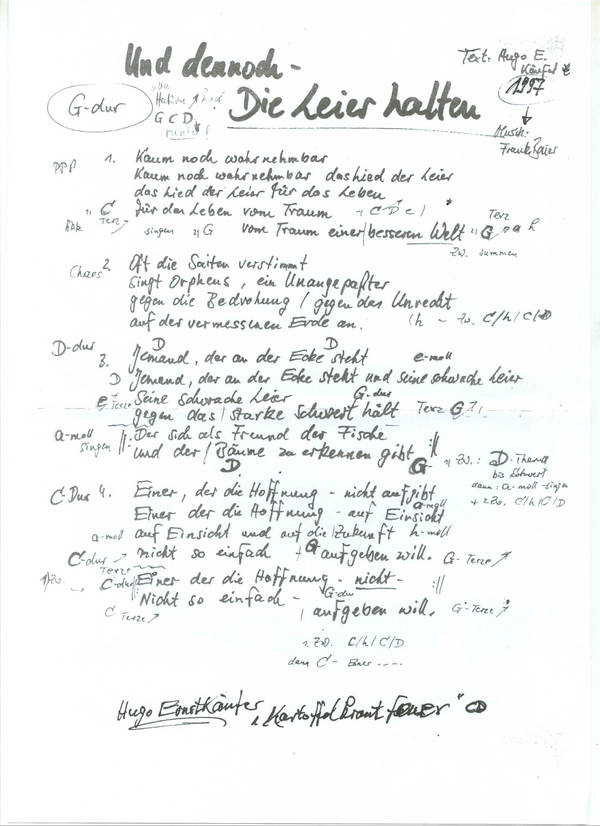 Und dennoch -
Die Leier halten
Text: Hugo E.
1997
Musik:
G-dur
G C D
ppp 1. Kaum noch wahrnehmbar
Kaum noch wahrnehmbar das Lied der Leier
das Lied der Leier für das Leben
C für das Leben vom Traum
Terz singen G vom Traum einer / besseren Welt G a h
Terz
Zw. summen
Chaos 2. Oft die Saiten verstimmt
singt Orpheus, ein Unangepaßter
gegen die Bedrohung / gegen das Unrecht
auf der vermessenen Erde an. (h - Zw. C/h/C/D
D-dur D D
3. Jemand, der an der Ecke steht e-moll
D Jemand, der an der Ecke steht und seine schwache Leier
e Terz Seine schwache Leier G-dur
gegen das / starke Schwert hält Terz G
a-moll singen ||: Der sich als Freund der Fische
und der / Bäume zu erkennen gibt :||
D G Zw.: D-Thema
bis Schwert
dann: a-moll-singen
+ 2 Zw. C/h/C/D
C-Dur 4. Einer, der die Hoffnung - nicht aufgibt
a-moll
Einer der die Hoffnung - auf Einsicht
a-moll auf Einsicht und auf die / Zukunft h-moll
C-dur nicht so einfach + G aufgeben will. G-Terze
Terze
1) Zw. C-dur ||: Einer der die Hoffnung - nicht - :||
G-dur
Nicht so einfach - / aufgeben will. G-Terze
C Terze
1. Zw. C/h/C/D
dann C - Einer ----
Hugo Ernst Käufer „Kartoffelkrautfeuer" CD